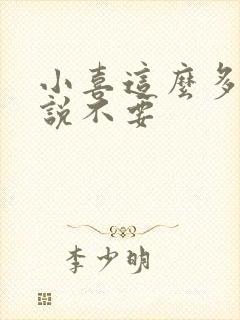 小喜這麼多
說不要
李少明